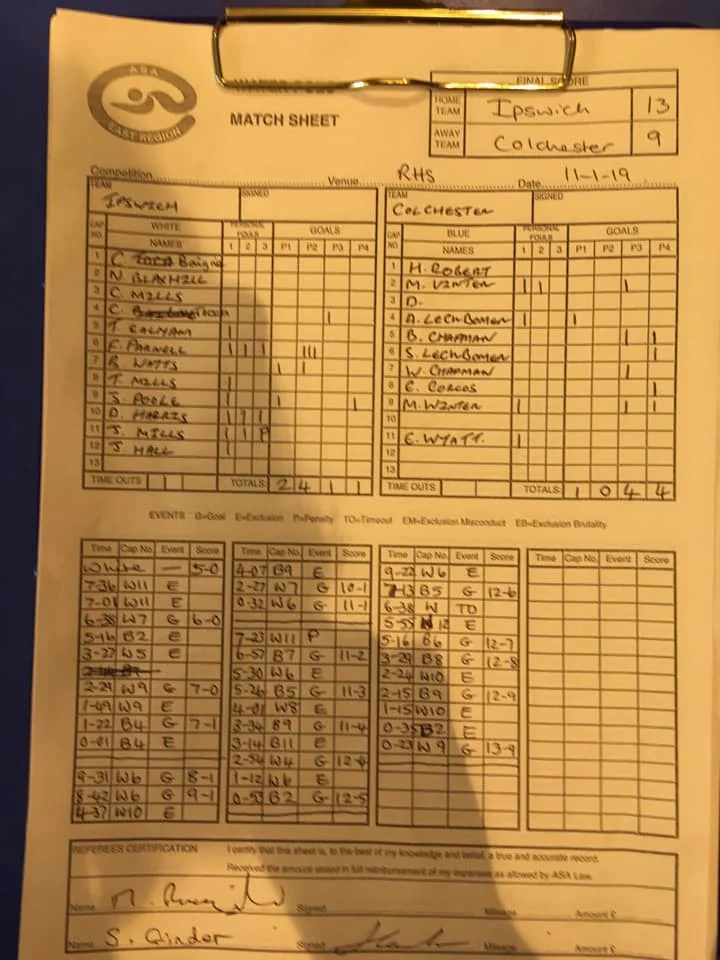 ASA
EAST REGION
MATCH SHEET
FINAL SCORE
HOME TEAM Ipswich 13
AWAY TEAM Colchester 9
Competition Venue RHS Date 11-1-19
TEAM IPSWICH SIGNED
TEAM COLCHESTER SIGNED
CAP NO. WHITE NAMES PERSONAL FOULS 1 2 3 GOALS P1 P2 P3 P4
1 C
2 N. BLAXHILL
3 C. MILLS
4 C.
5 T.
6 F. PARNELL
7 R WATTS
8 T. MILLS
9 S. POOLE
10 D. HARRIS
11 J. MILLS P
12 J HALL
13
TIME OUTS 1 TOTALS: 2 4 1 1
CAP NO. BLUE NAMES PERSONAL FOULS 1 2 3 GOALS P1 P2 P3 P4
1 H. ROBERT
2 M. VINTEN
3 D.
4 A. LECHBOMEN
5 B. CHAPMAN
6 S. LECHBOMEN
7 W. CHAPMAN
8 C. CORCOS
9 M. WINTEN
10
11 E. WYATT.
12
13
TIME OUTS TOTALS: 1 0 4 4
EVENTS G=Goal E=Exclusion P=Penalty TO=Timeout EM=Exclusion Misconduct EB=Exclusion Brutality
Time Cap No. Event Score
White — 5-0
7-36 W11 E
7-01 W11 E
6-38 W7 G 6-0
5-16 B2 E
3-27 W5 E
2-29 W9 G 7-0
1-49 W9 E
1-22 B4 G 7-1
0-01 B4 E
9-31 W6 G 8-1
8-42 W6 G 9-1
4-37 W10 E
Time Cap No. Event Score
4-07 B9 E
2-27 W7 G 10-1
0-32 W6 G 11-1
7-23 W11 P
6-57 B7 G 11-2
5-30 W6 E
5-26 B5 G 11-3
4-01 W8 E
3-34 B9 G 11-4
3-14 B11 E
2-54 W4 G 12-4
1-12 W6 E
0-53 B2 G 12-5
Time Cap No. Event Score
9-22 W6 E
7-13 B5 G 12-6
6-38 W TO
5-55 W12 E
5-16 B6 G 12-7
3-29 B8 G 12-8
2-24 W10 E
2-15 B9 G 12-9
1-15 W10 E
0-35 B2 E
0-23 W9 G 13-9
Time Cap No. Event Score
REFEREES CERTIFICATION I certify that this sheet is, to the best of my knowledge and belief, a true and accurate record.
Received the amount stated in full reimbursement of my expenses as allowed by ASA Law.
Name Signed Mileage Amount £
Name S. Qinder Signed Mileage Amount £